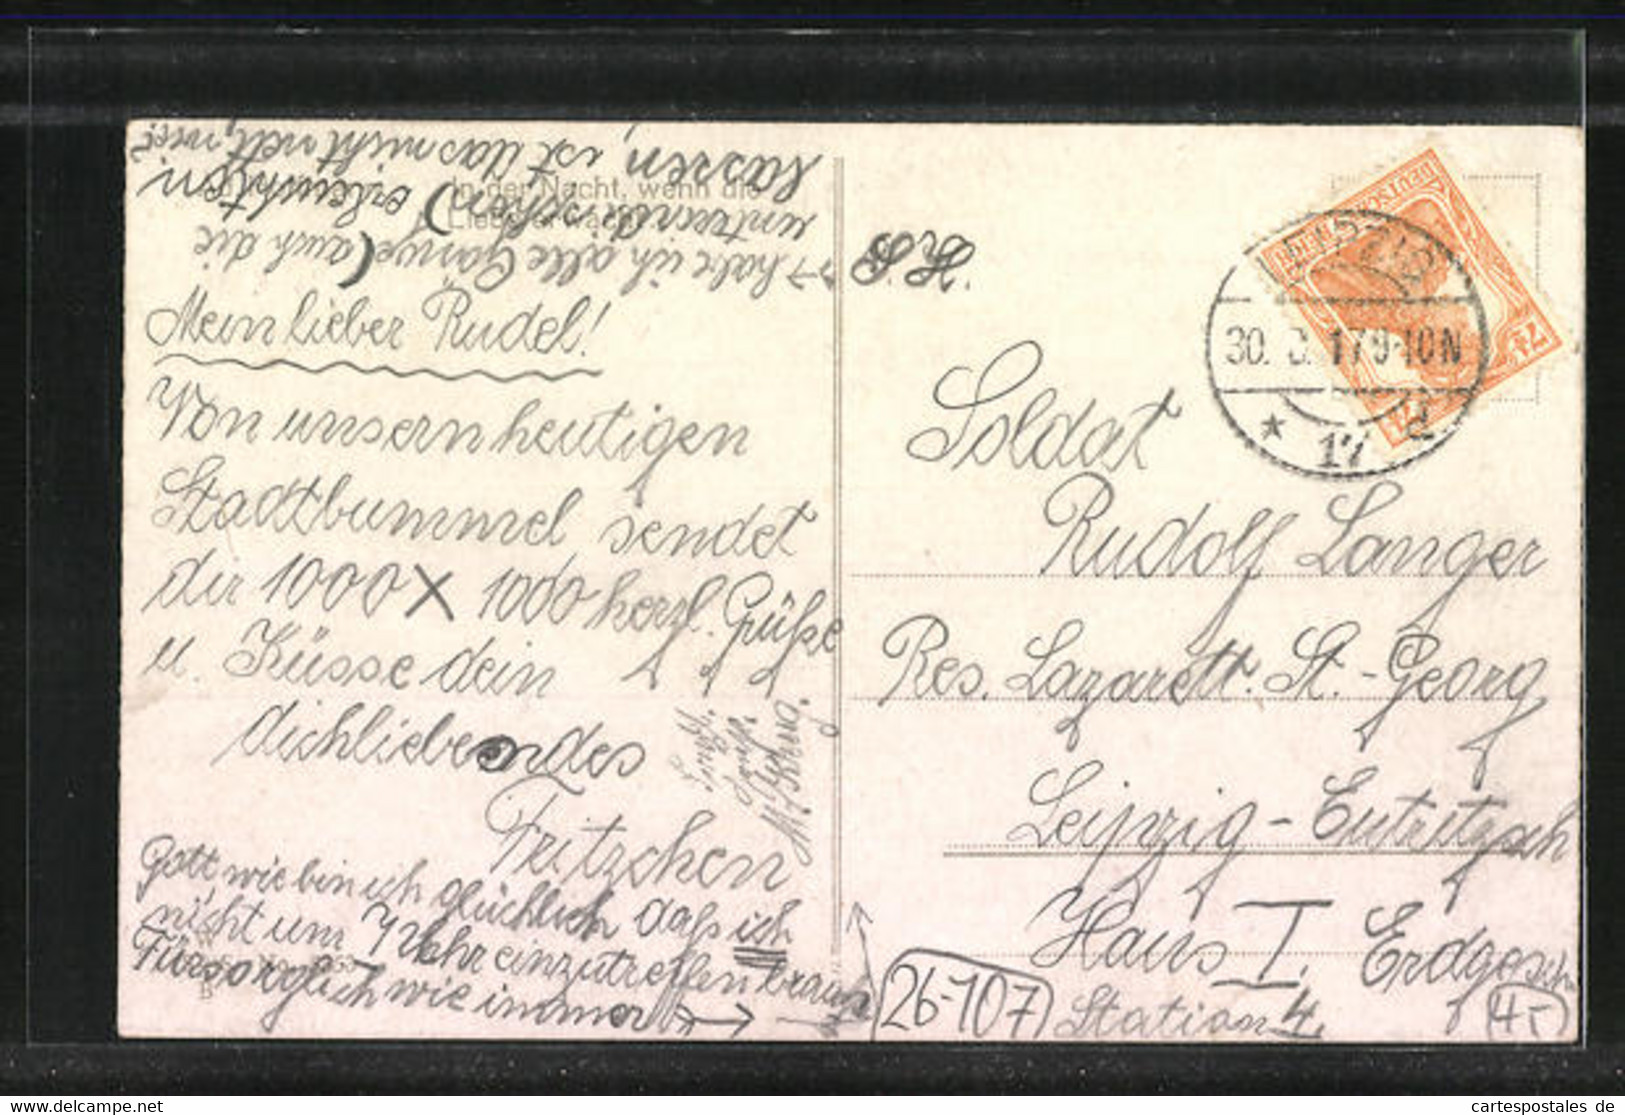 In der Nacht, wenn die
Liebe erwacht
Mein lieber Rudel!
Von unsern heutigen
Stadtbummel sendet
dir 1000 X 1000 herzl. Grüße
u. Küsse dein
dichliebendes
Fritzchen
Gott wie bin ich glücklich daß ich
nicht um 7 Uhr einzutreffen brauche
Fürsorglich wie immer
→ habe ich alle Gänge (auch die
untern schon) erleuchten
lassen, ist das nicht nett, wie?
Soldat
Rudolf Langer
Res. Lazarett. St.-Georg
Leipzig-Eutritzsch
Haus I. Erdgesch.
Station 4.
26-107
45
DEUTSCHES REICH
7½
LEIPZIG
30. 17 9-10N
* 17
cartespostales de
cartespostales.de